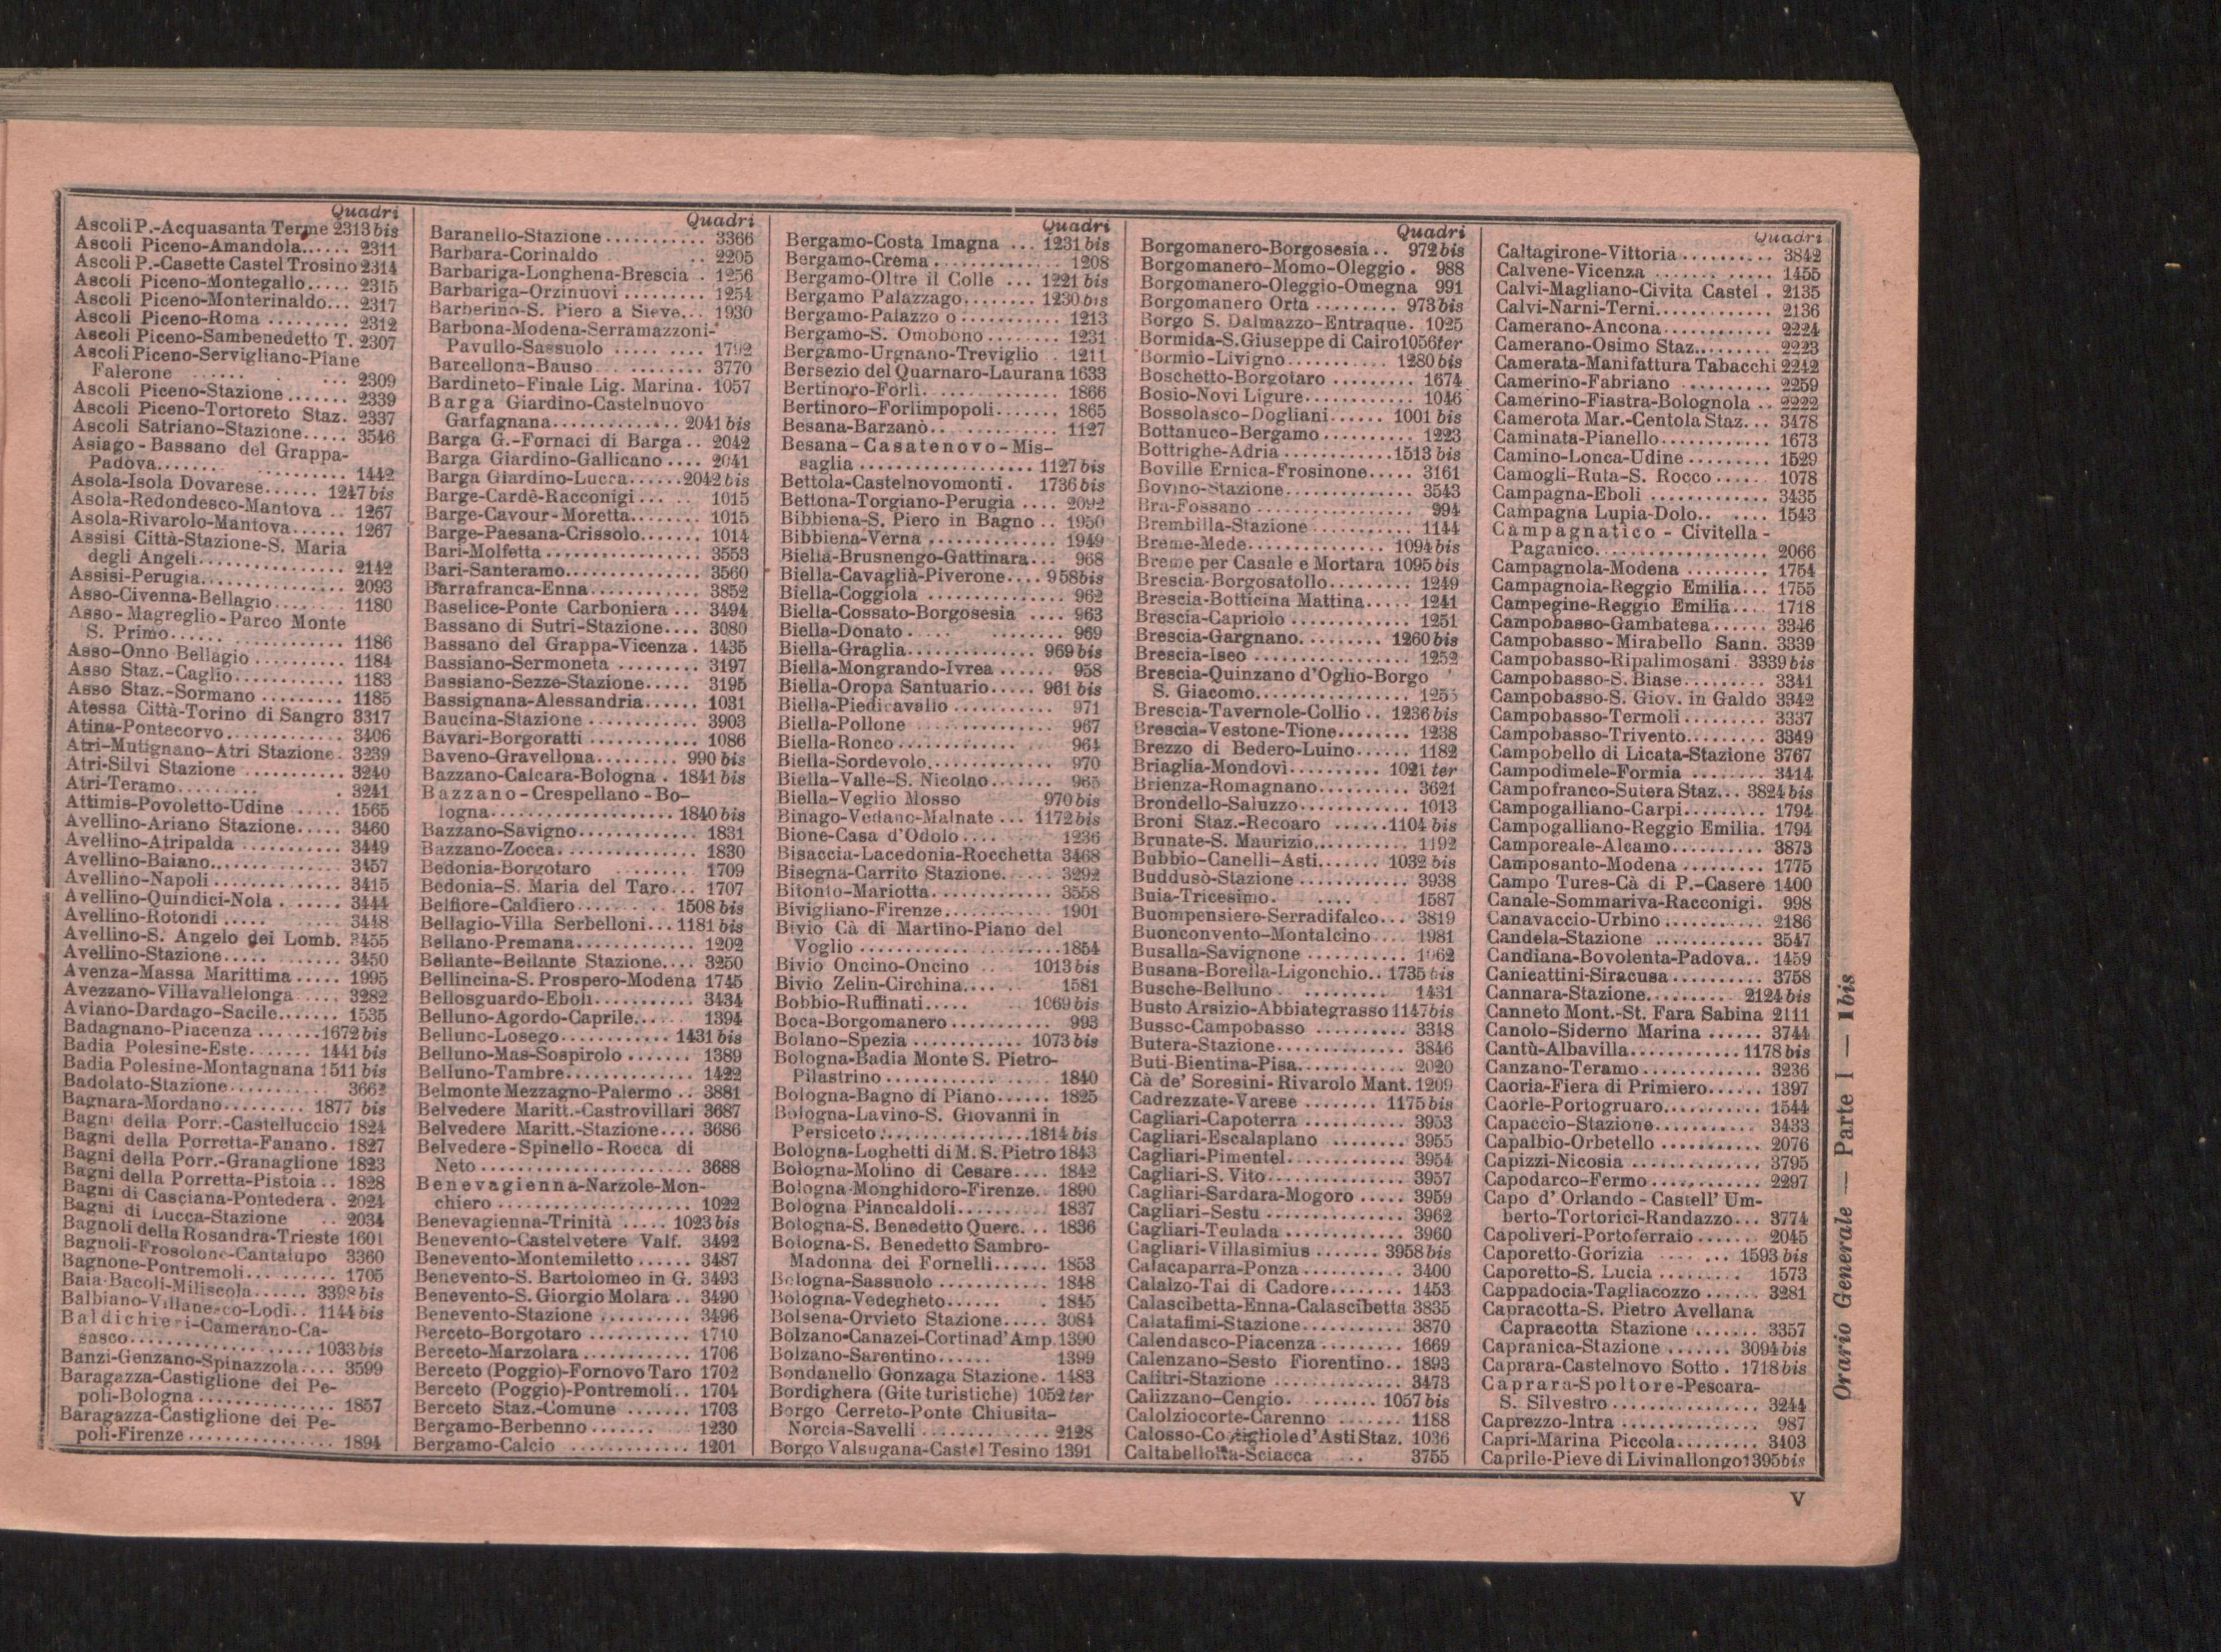 Quadri
Ascoli P.-Acquasanta Terme 2313 bis
Ascoli Piceno-Amandola...... 2311
Ascoli P.-Casette Castel Trosino 2314
Ascoli Piceno-Montegallo..... 2315
Ascoli Piceno-Monterinaldo... 2317
Ascoli Piceno-Roma ......... 2312
Ascoli Piceno-Sambenedetto T. 2307
Ascoli Piceno-Servigliano-Piane
Falerone ...... ... 2309
Ascoli Piceno-Stazione ....... 2339
Ascoli Piceno-Tortoreto Staz. 2337
Ascoli Satriano-Stazione..... 3546
Asiago-Bassano del Grappa-
Padova....... ......... 1442
Asola-Isola Dovarese...... 1247 bis
Asola-Redondesco-Mantova .. 1267
Asola-Rivarolo-Mantova...... 1267
Assisi Città-Stazione-S. Maria
degli Angeli................ 2142
Assisi-Perugia............... 2093
Asso-Civenna-Bellagio.... 1180
Asso-Magreglio-Parco Monte
S. Primo...... ............ 1186
Asso-Onno Bellagio .......... 1184
Asso Staz.-Caglio............ 1183
Asso Staz.-Sormano ......... 1185
Atessa Città-Torino di Sangro 3317
Atina-Pontecorvo............. 3406
Atri-Mutignano-Atri Stazione. 3239
Atri-Silvi Stazione ........... 3240
Atri-Teramo......... . 3241
Attimis-Povoletto-Udine ...... 1565
Avellino-Ariano Stazione..... 3460
Avellino-Atripalda ........... 3449
Avellino-Baiano.............. 3457
Avellino-Napoli .............. 3415
Avellino-Quindici-Nola ....... 3444
Avellino-Rotondi ..... 3448
Avellino-S. Angelo dei Lomb. 3455
Avellino-Stazione..... ....... 3450
Avenza-Massa Marittima ..... 1995
Avezzano-Villavallelonga .... 3282
Aviano-Dardago-Sacile....... 1535
Badagnano-Piacenza ...... 1672 bis
Badia Polesine-Este....... 1441 bis
Badia Polesine-Montagnana 1511 bis
Badolato-Stazione........... 3662
Bagnara-Mordano......... 1877 bis
Bagni della Porr.-Castelluccio 1824
Bagni della Porretta-Fanano. 1827
Bagni della Porr.-Granaglione 1823
Bagni della Porretta-Pistoia .. 1828
Bagni di Casciana-Pontedera . 2024
Bagni di Lucca-Stazione .. 2034
Bagnoli della Rosandra-Trieste 1601
Bagnoli-Frosolone-Cantalupo 3360
Bagnone-Pontremoli... ...... 1705
Baia-Bacoli-Miliscola...... 3398 bis
Balbiano-Villanesco-Lodi.. 1144 bis
Baldichieri-Camerano-Ca-
sasco.................... 1033 bis
Banzi-Genzano-Spinazzola.... 3599
Baragazza-Castiglione dei Pe-
poli-Bologna............... 1857
Baragazza-Castiglione dei Pe-
poli-Firenze................ 1894
Quadri
Baranello-Stazione........... 3366
Barbara-Corinaldo .. 2205
Barbariga-Longhena-Brescia . 1256
Barbariga-Orzinuovi ......... 1254
Barberino-S. Piero a Sieve... 1930
Barbona-Modena-Serramazzoni-
Pavullo-Sassuolo ..... .... 1792
Barcellona-Bauso ........ 3770
Bardineto-Finale Lig. Marina. 1057
Barga Giardino-Castelnuovo
Garfagnana.............. 2041 bis
Barga G.-Fornaci di Barga.. 2042
Barga Giardino-Gallicano .... 2041
Barga Giardino-Lucca...... 2042 bis
Barge-Cardè-Racconigi... .. 1015
Barge-Cavour-Moretta........ 1015
Barge-Paesana-Crissolo....... 1014
Bari-Molfetta................. 3553
Bari-Santeramo............... 3560
Barrafranca-Enna............. 3852
Baselice-Ponte Carboniera ... 3494
Bassano di Sutri-Stazione.... 3080
Bassano del Grappa-Vicenza . 1435
Bassiano-Sermoneta ......... 3197
Bassiano-Sezze-Stazione..... 3195
Bassignana-Alessandria...... 1031
Baucina-Stazione ............ 3903
Bavari-Borgoratti ............ 1086
Baveno-Gravellona......... 990 bis
Bazzano-Calcara-Bologna . 1841 bis
Bazzano-Crespellano-Bo-
logna................... 1840 bis
Bazzano-Savigno............. 1831
Bazzano-Zocca............... 1830
Bedonia-Borgotaro ........ 1709
Bedonia-S. Maria del Taro... 1707
Belfiore-Caldiero........ 1508 bis
Bellagio-Villa Serbelloni... 1181 bis
Bellano-Premana............. 1202
Bellante-Bellante Stazione.... 3250
Bellincina-S. Prospero-Modena 1745
Bellosguardo-Eboli........... 3434
Belluno-Agordo-Caprile...... 1394
Belluno-Losego............ 1431 bis
Belluno-Mas-Sospirolo ....... 1389
Belluno-Tambre.............. 1422
Belmonte Mezzagno-Palermo .. 3881
Belvedere Maritt.-Castrovillari 3687
Belvedere Maritt.-Stazione.... 3686
Belvedere-Spinello-Rocca di
Neto ....................... 3688
Benevagienna-Narzole-Mon-
chiero ..................... 1022
Benevagienna-Trinità ..... 1023 bis
Benevento-Castelvetere Valf. 3492
Benevento-Montemiletto...... 3487
Benevento-S. Bartolomeo in G. 3493
Benevento-S. Giorgio Molara .. 3490
Benevento-Stazione .......... 3496
Berceto-Borgotaro ........... 1710
Berceto-Marzolara ........... 1706
Berceto (Poggio)-Fornovo Taro 1702
Berceto (Poggio)-Pontremoli.. 1704
Berceto Staz.-Comune ....... 1703
Bergamo-Berbenno....... 1230
Bergamo-Calcio ............. 1201
Quadri
Bergamo-Costa Imagna ... 1231 bis
Bergamo-Crema.............. 1208
Bergamo-Oltre il Colle ... 1221 bis
Bergamo Palazzago........ 1230 bis
Bergamo-Palazzo o........... 1213
Bergamo-S. Omobono........ 1231
Bergamo-Urgnano-Treviglio . 1211
Bersezio del Quarnaro-Laurana 1633
Bertinoro-Forlì............... 1866
Bertinoro-Forlimpopoli....... 1865
Besana-Barzanò.............. 1127
Besana-Casatenovo-Mis-
saglia ................... 1127 bis
Bettola-Castelnovomonti. 1736 bis
Bettona-Torgiano-Perugia .... 2092
Bibbiena-S. Piero in Bagno .. 1950
Bibbiena-Verna .............. 1949
Biella-Brusnengo-Gattinara... 968
Biella-Cavaglià-Piverone.... 958 bis
Biella-Coggiola ............... 962
Biella-Cossato-Borgosesia .... 963
Biella-Donato..... ........ 969
Biella-Graglia.............. 969 bis
Biella-Mongrando-Ivrea ...... 958
Biella-Oropa Santuario..... 961 bis
Biella-Piedicavallo ........... 971
Biella-Pollone ............. 967
Biella-Ronco............. 964
Biella-Sordevolo.............. 970
Biella-Valle-S. Nicolao....... 965
Biella-Veglio Mosso 970 bis
Binago-Vedano-Malnate ... 1172 bis
Bione-Casa d'Odolo.... 1236
Bisaccia-Lacedonia-Rocchetta 3468
Bisegna-Carrito Stazione..... 3292
Bitonto-Mariotta.............. 3558
Bivigliano-Firenze............ 1901
Bivio Cà di Martino-Piano del
Voglio ..................... 1854
Bivio Oncino-Oncino .. 1013 bis
Bivio Zelin-Circhina.... . 1581
Bobbio-Ruffinati..... .. 1069 bis
Boca-Borgomanero........... 993
Bolano-Spezia ............ 1073 bis
Bologna-Badia Monte S. Pietro-
Pilastrino............ .... 1840
Bologna-Bagno di Piano...... 1825
Bologna-Lavino-S. Giovanni in
Persiceto................ 1814 bis
Bologna-Loghetti di M. S. Pietro 1843
Bologna-Molino di Cesare.... 1842
Bologna-Monghidoro-Firenze. 1890
Bologna Piancaldoli.......... 1837
Bologna-S. Benedetto Querc... 1836
Bologna-S. Benedetto Sambro-
Madonna dei Fornelli...... 1853
Bologna-Sassuolo ............ 1848
Bologna-Vedegheto...... . 1845
Bolsena-Orvieto Stazione..... 3084
Bolzano-Canazei-Cortina d'Amp. 1390
Bolzano-Sarentino...... 1399
Bondanello Gonzaga Stazione. 1483
Bordighera (Gite turistiche) 1052 ter
Borgo Cerreto-Ponte Chiusita-
Norcia-Savelli .............. 2128
Borgo Valsugana-Castel Tesino 1391
Quadri
Borgomanero-Borgosesia.. 972 bis
Borgomanero-Momo-Oleggio . 988
Borgomanero-Oleggio-Omegna 991
Borgomanero Orta ......... 973 bis
Borgo S. Dalmazzo-Entraque. 1025
Bormida-S. Giuseppe di Cairo 1056 ter
Bormio-Livigno........... 1280 bis
Boschetto-Borgotaro ......... 1674
Bosio-Novi Ligure............ 1046
Bossolasco-Dogliani...... 1001 bis
Bottanuco-Bergamo.......... 1223
Bottrighe-Adria ............ 1513 bis
Boville Ernica-Frosinone..... 3161
Bovino-Stazione.............. 3543
Bra-Fossano ................. 994
Brembilla-Stazione ........... 1144
Breme-Mede............... 1094 bis
Breme per Casale e Mortara 1095 bis
Brescia-Borgosatollo......... 1249
Brescia-Botticina Mattina..... 1241
Brescia-Capriolo ............. 1251
Brescia-Gargnano......... 1260 bis
Brescia-Iseo ................. 1252
Brescia-Quinzano d'Oglio-Borgo
S. Giacomo............... 1253
Brescia-Tavernole-Collio .. 1236 bis
Brescia-Vestone-Tione........ 1238
Brezzo di Bedero-Luino...... 1182
Briaglia-Mondovì.......... 1021 ter
Brienza-Romagnano.......... 3621
Brondello-Saluzzo............ 1013
Broni Staz.-Recoaro ...... 1104 bis
Brunate-S. Maurizio........... 1192
Bubbio-Canelli-Asti....... 1032 bis
Buddusò-Stazione ............ 3938
Buia-Tricesimo. .... . 1587
Buompensiere-Serradifalco... 3819
Buonconvento-Montalcino.... 1981
Busalla-Savignone ........... 1062
Busana-Borella-Ligonchio.. 1735 bis
Busche-Belluno . ......... 1431
Busto Arsizio-Abbiategrasso 1147 bis
Busso-Campobasso .......... 3348
Butera-Stazione.............. 3846
Buti-Bientina-Pisa............ 2020
Cà de' Soresini-Rivarolo Mant. 1209
Cadrezzate-Varese ........ 1175 bis
Cagliari-Capoterra ........... 3953
Cagliari-Escalaplano ........ 3955
Cagliari-Pimentel............. 3954
Cagliari-S. Vito.............. 3957
Cagliari-Sardara-Mogoro ..... 3959
Cagliari-Sestu ............... 3962
Cagliari-Teulada ............. 3960
Cagliari-Villasimius ....... 3958 bis
Calacaparra-Ponza........... 3400
Calalzo-Tai di Cadore........ 1453
Calascibetta-Enna-Calascibetta 3835
Calatafimi-Stazione........... 3870
Calendasco-Piacenza ......... 1669
Calenzano-Sesto Fiorentino.. 1893
Calitri-Stazione .............. 3473
Calizzano-Cengio.......... 1057 bis
Calolziocorte-Carenno ....... 1188
Calosso-Costigliole d'Asti Staz. 1036
Caltabellotta-Sciacca ... 3755
Quadri
Caltagirone-Vittoria.......... 3842
Calvene-Vicenza ....... ..... 1455
Calvi-Magliano-Civita Castel . 2135
Calvi-Narni-Terni............. 2136
Camerano-Ancona............ 2224
Camerano-Osimo Staz......... 2223
Camerata-Manifattura Tabacchi 2242
Camerino-Fabriano ......... 2259
Camerino-Fiastra-Bolognola .. 2222
Camerota Mar.-Centola Staz... 3478
Caminata-Pianello............ 1673
Camino-Lonca-Udine ......... 1529
Camogli-Ruta-S. Rocco...... 1078
Campagna-Eboli ............ 3435
Campagna Lupia-Dolo.. .... 1543
Campagnatico-Civitella-
Paganico................... 2066
Campagnola-Modena ......... 1754
Campagnola-Reggio Emilia... 1755
Campegine-Reggio Emilia.... 1718
Campobasso-Gambatesa...... 3346
Campobasso-Mirabello Sann. 3339
Campobasso-Ripalimosani . 3339 bis
Campobasso-S. Biase......... 3341
Campobasso-S. Giov. in Galdo 3342
Campobasso-Termoli......... 3337
Campobasso-Trivento......... 3349
Campobello di Licata-Stazione 3767
Campodimele-Formia ........ 3414
Campofranco-Sutera Staz... 3824 bis
Campogalliano-Carpi......... 1794
Campogalliano-Reggio Emilia. 1794
Camporeale-Alcamo.......... 3873
Camposanto-Modena ......... 1775
Campo Tures-Cà di P.-Casere 1400
Canale-Sommariva-Racconigi. 998
Canavaccio-Urbino ........... 2186
Candela-Stazione ............ 3547
Candiana-Bovolenta-Padova.. 1459
Canicattini-Siracusa.......... 3758
Cannara-Stazione......... 2124 bis
Canneto Mont.-St. Fara Sabina 2111
Canolo-Siderno Marina ...... 3744
Cantù-Albavilla............ 1178 bis
Canzano-Teramo............. 3236
Caoria-Fiera di Primiero...... 1397
Caorle-Portogruaro........... 1544
Capaccio-Stazione........... 3433
Capalbio-Orbetello ........... 2076
Capizzi-Nicosia .............. 3795
Capodarco-Fermo............ 2297
Capo d'Orlando-Castell' Um-
berto-Tortorici-Randazzo... 3774
Capoliveri-Portoferraio ....... 2045
Caporetto-Gorizia .... .. 1593 bis
Caporetto-S. Lucia ......... 1573
Cappadocia-Tagliacozzo ...... 3281
Capracotta-S. Pietro Avellana
Capracotta Stazione ....... 3357
Capranica-Stazione ....... 3094 bis
Caprara-Castelnovo Sotto . 1718 bis
Caprara-Spoltore-Pescara-
S. Silvestro ................ 3244
Caprezzo-Intra ............... 987
Capri-Marina Piccola......... 3403
Caprile-Pieve di Livinallongo 1395 bis
Orario Generale — Parte I — 1 bis
V